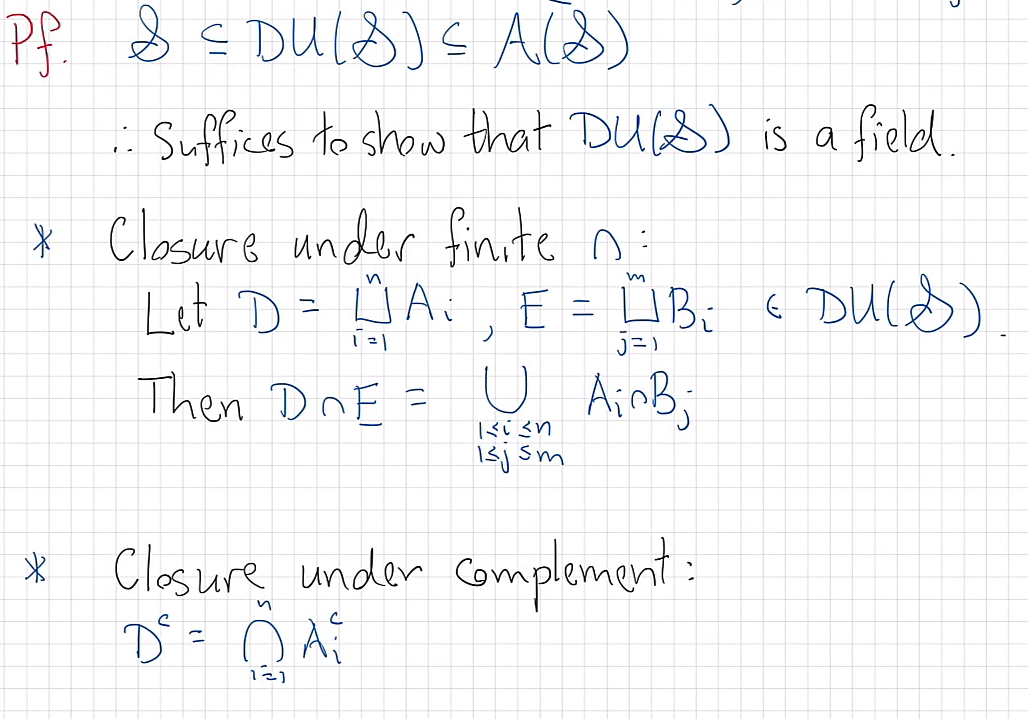 Pf. 𝒮 ⊆ DU(𝒮) ⊆ A(𝒮)
∴ Suffices to show that DU(𝒮) is a field.
* Closure under finite ∩ :
Let D = ⊔_{i=1}^{n} A_i , E = ⊔_{j=1}^{m} B_i ∈ DU(𝒮).
Then D ∩ E = ⋃_{1≤i≤n 1≤j≤m} A_i ∩ B_j
* Closure under complement :
D^c = ⋂_{i=1}^{n} A_i^c